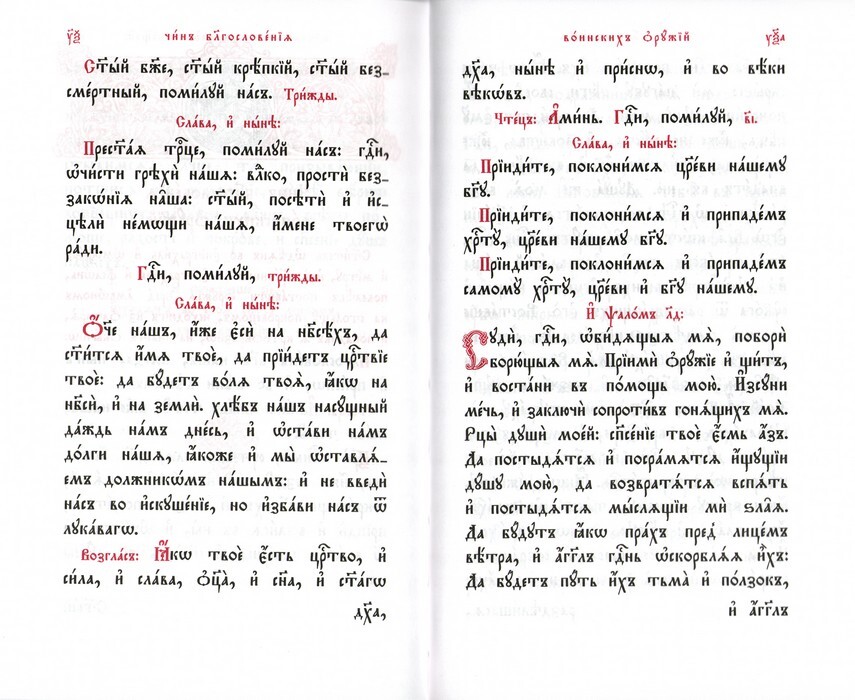 у҃ѯ
чи́нъ бл҃гослове́нїѧ
Ст҃ы́й бж҃е, ст҃ы́й крѣ́пкїй, ст҃ы́й без_
сме́ртный, поми́луй на́съ. Три́жды.
Сла́ва, и҆ ны́нѣ:
Прест҃а́ѧ трⷪ҇це, поми́луй на́съ: гдⷭ҇и,
ѡ҆чи́сти грѣхѝ на́шѧ: влⷣко, простѝ без_
зако́нїѧ на̑ша: ст҃ы́й, посѣтѝ и҆ и҆с_
цѣлѝ не́мѡщи на́шѧ, и҆́мене твоегѡ̀
ра́ди.
Гдⷭ҇и, поми́луй, три́жды.
Сла́ва, и҆ ны́нѣ:
Ѻ҆́ч҃е на́шъ, и҆́же є҆сѝ на нб҃сѣ́хъ, да
ст҃и́тсѧ и҆́мѧ твоѐ, да прїи́детъ црⷭ҇твїе
твоѐ: да бу́детъ во́лѧ твоѧ̀, ꙗ҆́кѡ на
нб҃сѝ, и҆ на землѝ. хлѣ́бъ на́шъ насу́щный
да́ждь на́мъ дне́сь, и҆ ѡ҆ста́ви на́мъ
до́лги на́шѧ, ꙗ҆́коже и҆ мы̀ ѡ҆ставлѧ́_
емъ должникѡ́мъ на́шымъ: и҆ не введѝ
на́съ во и҆скуше́нїе, но и҆зба́ви на́съ ѿ
лука́вагѡ.
Возгла́съ: Ꙗ҆́кѡ твоѐ є҆́сть црⷭ҇тво, и҆
си́ла, и҆ сла́ва, ѻ҆ц҃а̀, и҆ сн҃а, и҆ ст҃а́гѡ
дх҃а,
во́инскихъ ѻ҆ру́жїй
у҃ѯа
дх҃а, ны́нѣ и҆ при́снѡ, и҆ во вѣ́ки
вѣкѡ́въ.
Чте́цъ: А҆ми́нь. Гдⷭ҇и, поми́луй, в҃і.
Сла́ва, и҆ ны́нѣ:
Прїиди́те, поклони́мсѧ цр҃е́ви на́шему
бг҃у.
Прїиди́те, поклони́мсѧ и҆ припаде́мъ
хрⷭ҇ту̀, цр҃е́ви на́шему бг҃у.
Прїиди́те, поклони́мсѧ и҆ припаде́мъ
самому̀ хрⷭ҇ту̀, цр҃е́ви и҆ бг҃у на́шему.
И҆ ѱало́мъ л҃д:
Судѝ, гдⷭ҇и, ѡ҆би́дѧщыѧ мѧ̀, поборѝ
борю́щыѧ мѧ̀. Прїимѝ ѻ҆ру́жїе и҆ щи́тъ,
и҆ воста́ни въ по́мощь мою̀. И҆зсу́ни
ме́чь, и҆ заключѝ сопроти́въ гонѧ́щихъ мѧ̀.
Рцы̀ душѝ мое́й: спⷭ҇се́нїе твоѐ є҆́смь а҆́зъ.
Да постыдѧ́тсѧ и҆ посра́мѧтсѧ и҆́щущїи
ду́шу мою̀, да возвратѧ́тсѧ вспѧ́ть
и҆ постыдѧ́тсѧ мы́слѧщїи мѝ ѕла̑ѧ.
Да бу́дутъ ꙗ҆́кѡ пра́хъ пред̾ лице́мъ
вѣ́тра, и҆ а҆́гг҃лъ гдⷭ҇нь ѡ҆скорблѧ́ѧ и҆̀хъ:
Да бу́детъ пу́ть и҆́хъ тьма̀ и҆ по́лзокъ,
и҆ а҆́гг҃лъ